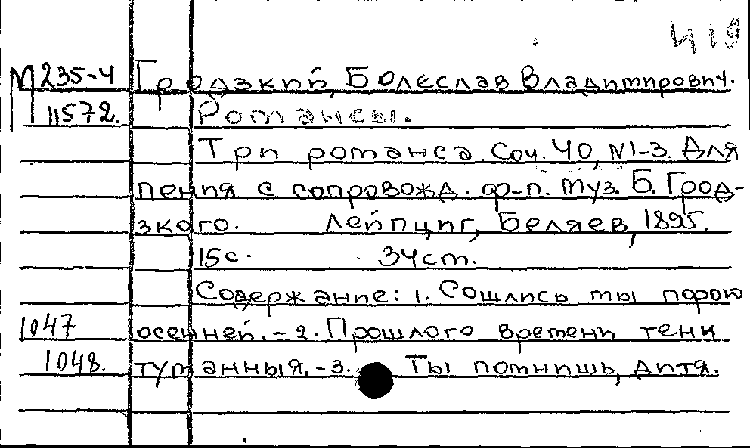 419
М 235-4 Гродзкий, Болеслав Владимирович.
11572. Романсы.
Три романса. Соч. 40, №1-3. Для
пения с сопровожд. ф-п. Муз. Б. Грод-
зкого. Лейпциг, Беляев, 1895.
15с. 34см.
Содержание: 1. Сошлись мы порою
1047 осенней. - 2. Прошлого времени тени
1048. туманныя. - 3. Ты помнишь, дитя.